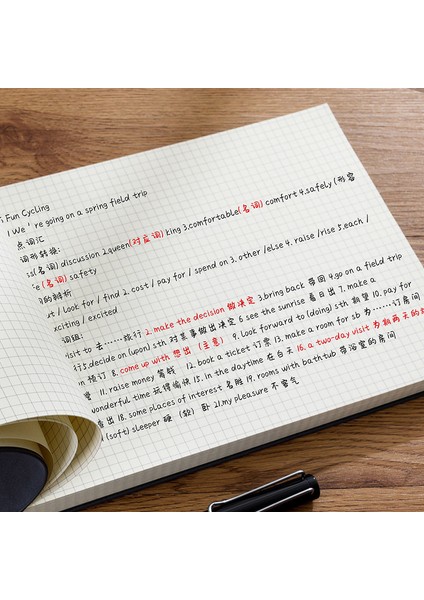 Fun Cycling
We're going on a spring field trip
点词汇
词形转换:
ss(名词) discussion 2.queen(对应词) king 3.comfortable(名词) comfort 4.safely (形容
e(名词) safety
的辨析
ut / Look for / find 2. cost / pay for / spend on 3. other /else 4. raise /rise 5.each /
xciting / excited
词组:
visit to 去……旅行 2. make the decision 做决定 3.bring back 带回 4.go on a field trip
行 5.decide on (upon) sth 对某事做出决定 6 see the sunrise 看日出 7. make a
on 预订 8. come up with 想出 (主意) 9. look forward to (doing) sth 期望 10. pay for
望 11. raise money 筹钱 12. book a ticket 订票 13. make a room for sb 为……订房间
wonderful time 玩得愉快 15. in the daytime 在白天 16. a two-day visit 为期两天的
看出 18. some places of interest 名胜 19. rooms with bathtub 带浴室的房间
d (soft) sleeper 硬 (软) 卧 21.my pleasure 不客气